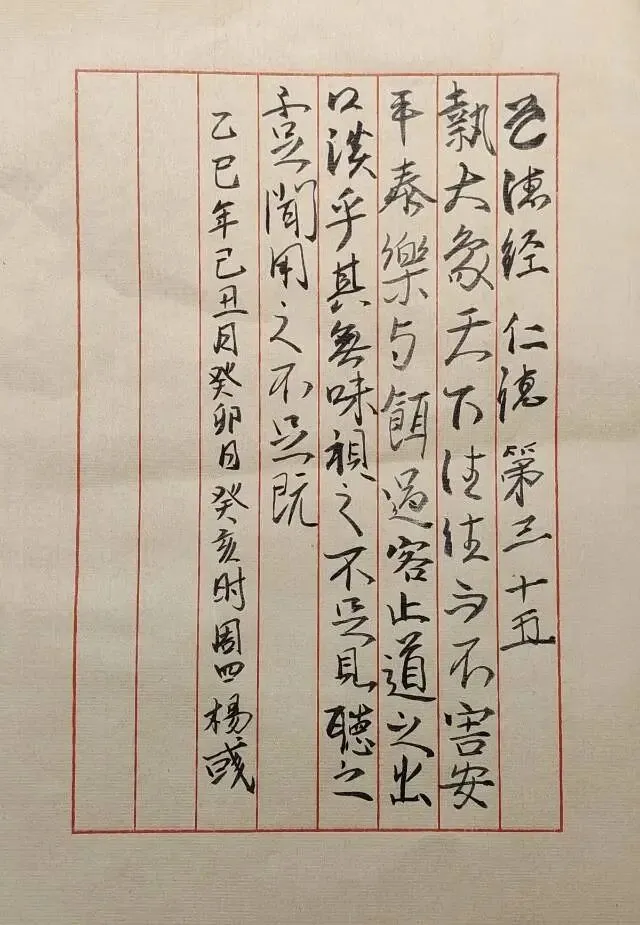 道德经 仁德 第三十五
執大象天下往往而不害安
平泰樂与餌過客止道之出
口淡乎其無味視之不足見聽之
不足聞用之不足既
乙巳年己丑月癸卯日癸亥时周四楊彧